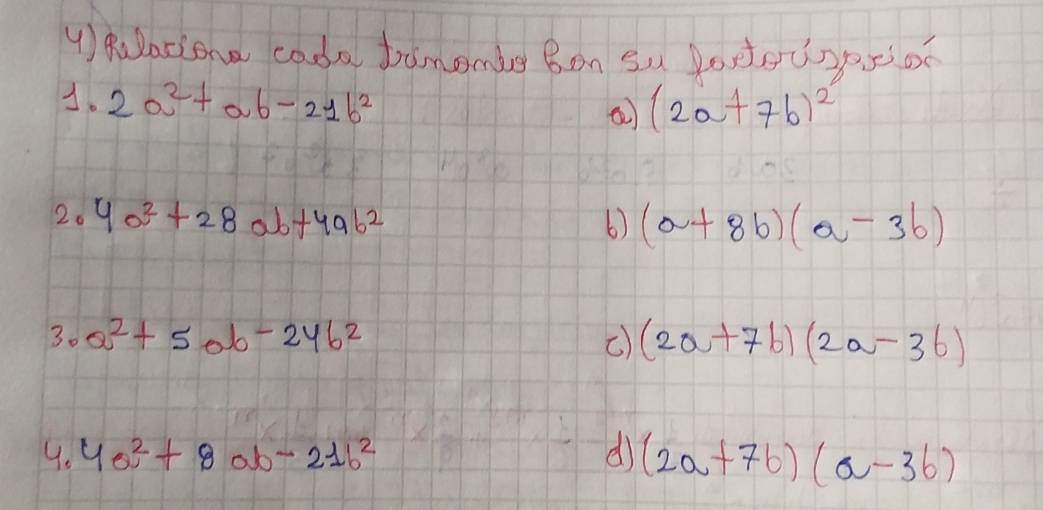 4) Relaciona cada trinomio con su factorización
1. 2a² + ab - 21b²
a) (2a + 7b)²
2. 4a² + 28ab + 49b²
b) (a + 8b)(a - 3b)
3. a² + 5ab - 24b²
c) (2a + 7b)(2a - 3b)
4. 4a² + 8ab - 21b²
d) (2a + 7b)(a - 3b)